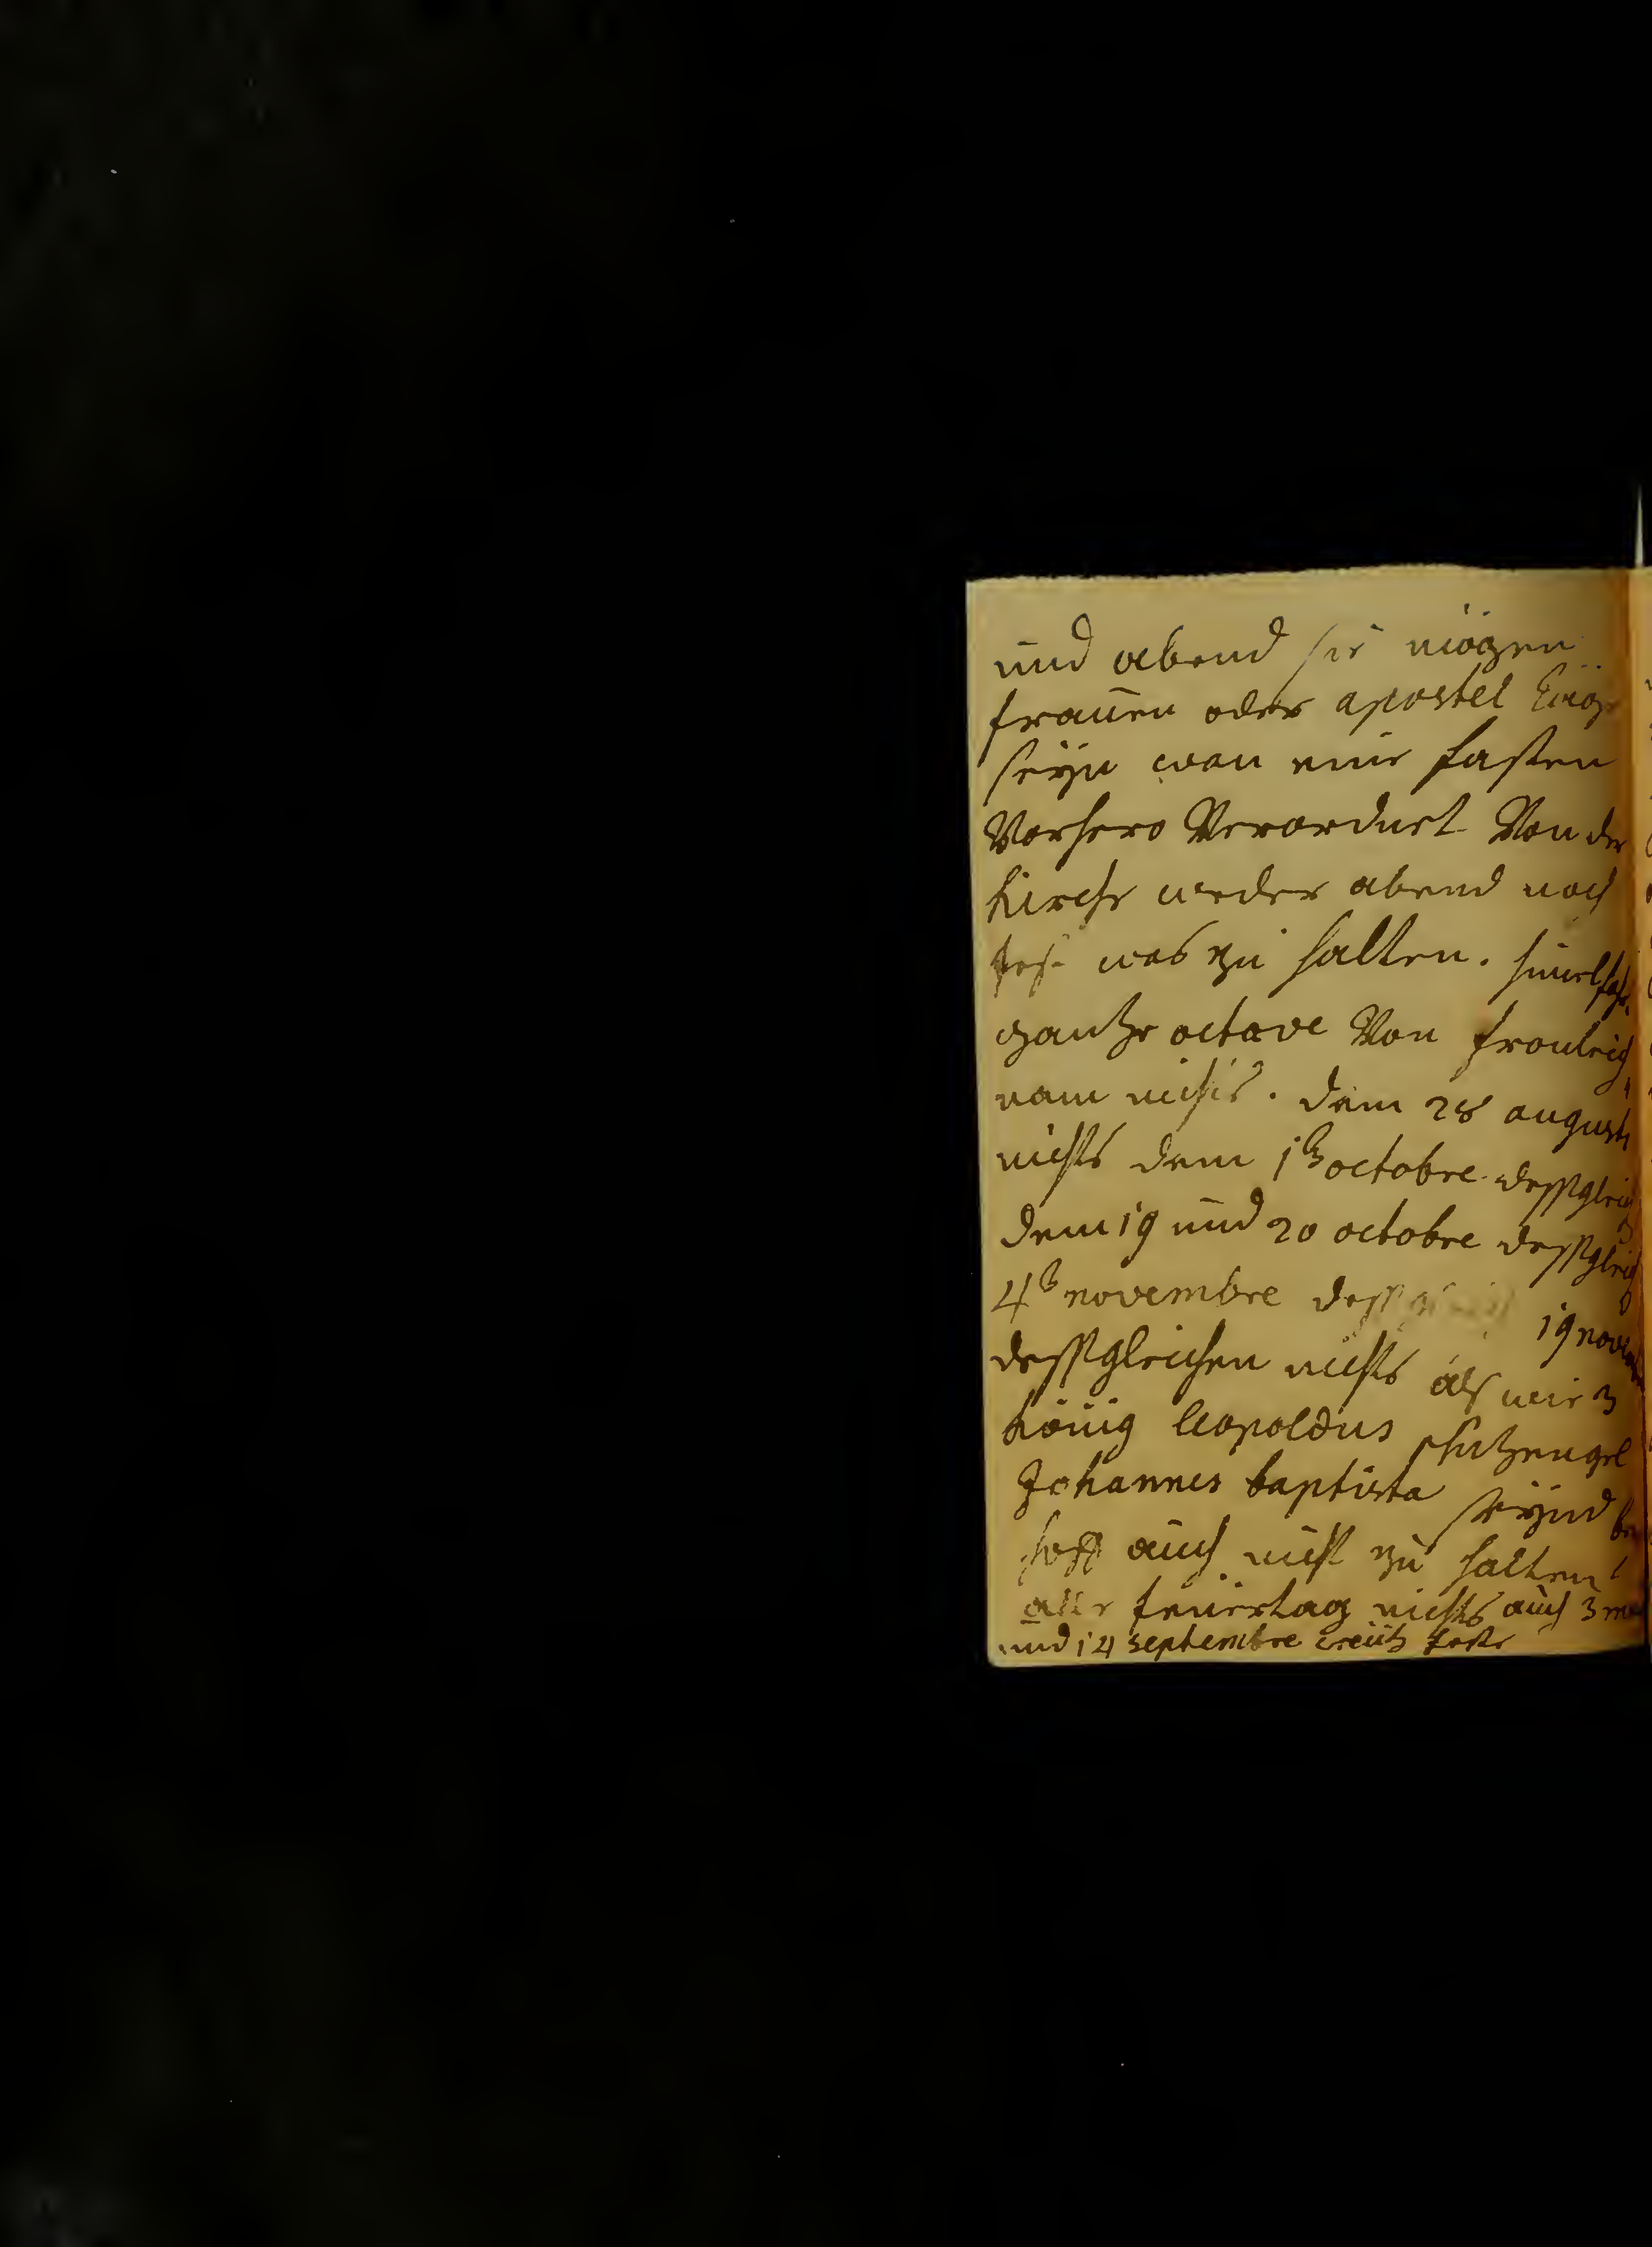 und abend sie mögen
frauen oder apostel
seyn wan eine fasten
Vorhero Verordnet Von der
Kirche weder abend noch
fest was zu halten. himelfahr
gantze octave Von fronleich
nam nichts. dem 28 augusti
nichts dem 1ten octobre dessgleich
dem 19 und 20 octobre dessgleich
4t novembre 19 novembre
dessgleichen nichts als wie 3
könig leopoldus schutzengel
Johannes baptista seynd
hoff auch nicht zu halten
alle feuertag nichts auch 3
und 14 septembre creütz feste